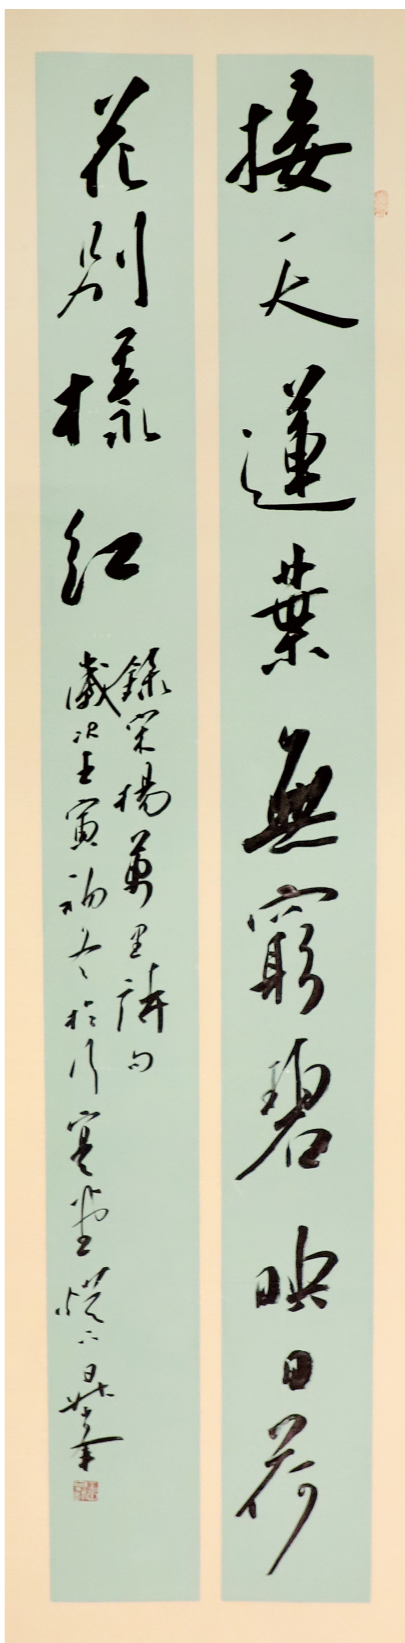 接天蓮葉無窮碧映日荷
花別樣紅
錄宋楊萬里詩句
歲次壬寅初冬於行寬堂